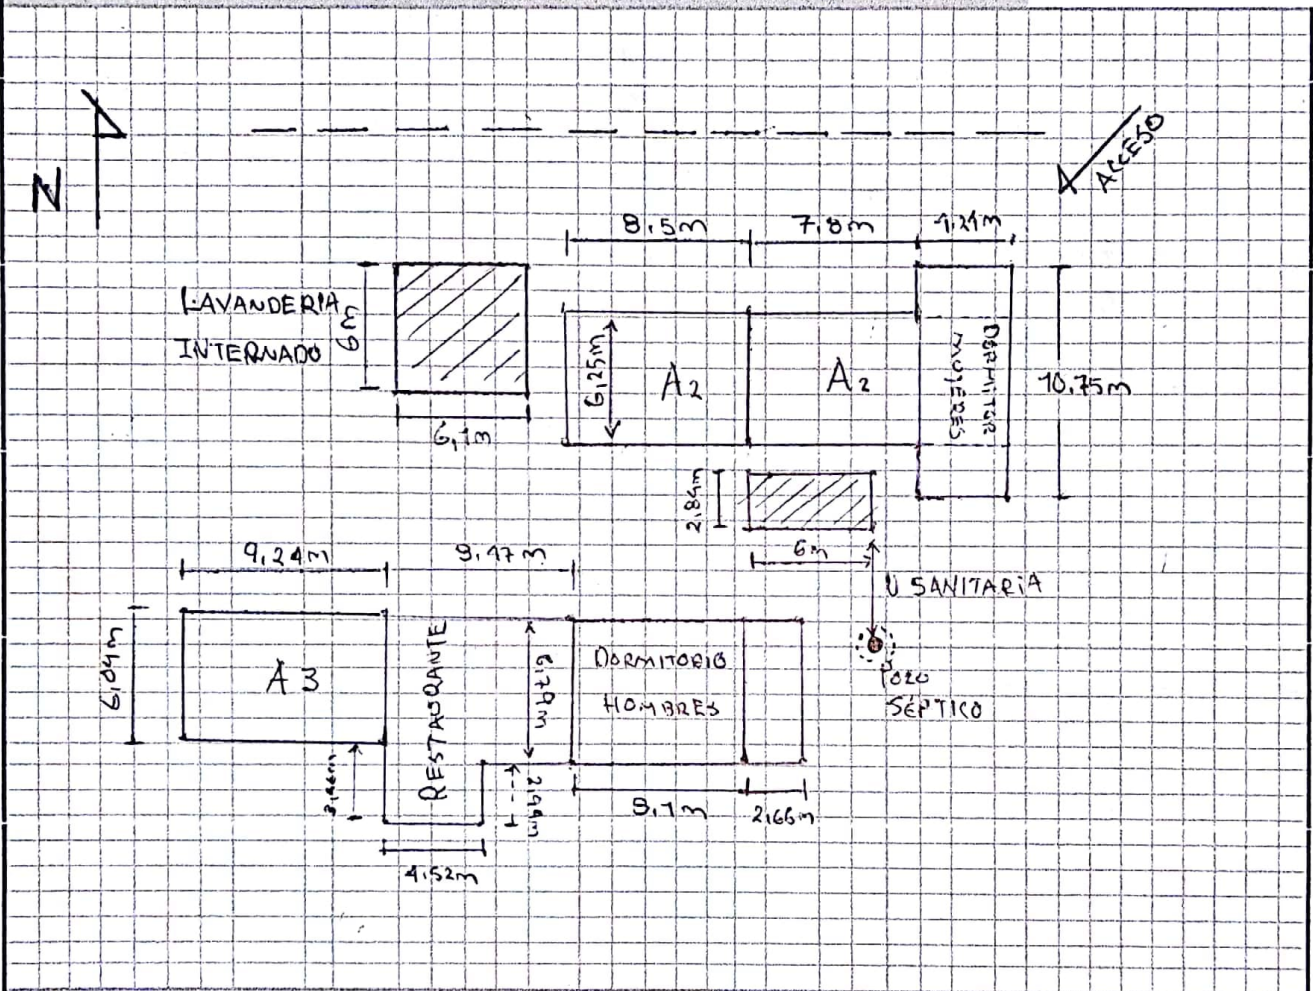 N
ACCESO
8,5m
7,8m
4,24m
LAVANDERIA
INTERNADO
6m
6,1m
6,25m
A2
A2
DORMITOR
MUJERES
10,75m
2,84m
6m
U SANITARIA
POZO
SÉPTICO
9,24m
8,47m
6,04m
A3
RESTAURANTE
6,79m
DORMITORIO
HOMBRES
2,44m
4,52m
8,1m
2,66m